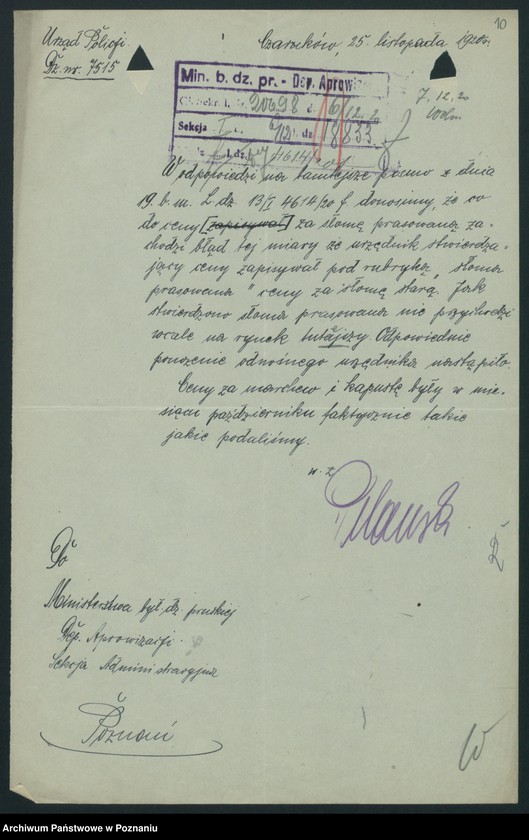 10
Urząd Policji.
Dz. nr. 7515
Czarnków, 25. listopada 1920r.
Min. b. dz. pr. - Dep. Aprowiz
20698 d. 6/12. 2
Sekcja I. l. dz. 8833
l. dz. 4614/20
7. 12. 20
W odpowiedzi na tamtejsze pismo z dnia
19. b. m. L. dz. 13/I 4614/20 f. donosimy, że co
do ceny [zapisywał] za słomę prasowaną za-
chodzi błąd tej miary że urzędnik stwierdza-
jący ceny zapisywał pod rubryką "słoma
prasowana" ceny za słomę starą. Jak
stwierdzono słoma prasowana nie przychodzi
wcale na rynek tutajszy. Odpowiednie
pouczenie odnośnego urzędnika nastąpiło.
Ceny za marchew i kapustę były w mie-
siącu październiku faktycznie takie
jakie podaliśmy.
w. z.
Do
Ministerstwa był. dz. pruskiej
Dep. Aprowizacji.
Sekcja Administracyjna
Poznań
Archiwum Państwowe w Poznaniu